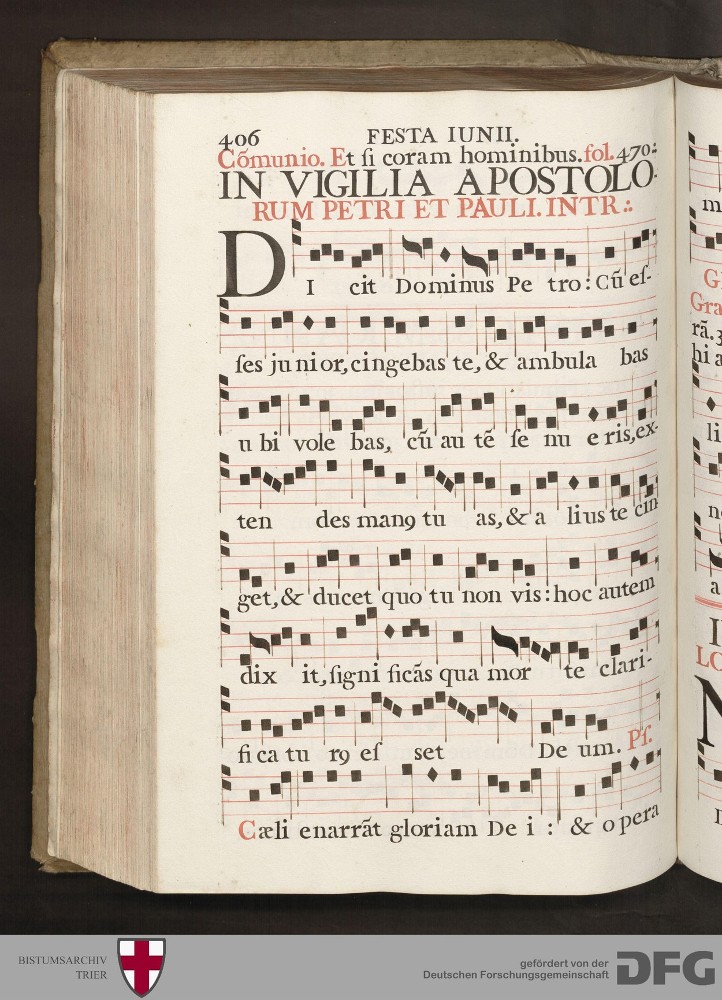 406 FESTA IUNII.
Cõmunio. Et ſi coram hominibus. fol. 470.
IN VIGILIA APOSTOLO-
RUM PETRI ET PAULI. INTR.:.
DI cit Dominus Pe tro: Cũ eſ-
ſes ju ni or, cingebas te, & ambula bas
u bi vole bas, cũ au tẽ ſe nu e ris, ex-
ten des manꝯ tu as, & a lius te cin
get, & ducet quo tu non vis: hoc autem
dix it, ſigni ficãs qua mor te clari-
fi ca tu rꝯ eſ set De um. Pſ.
Cæli enarrãt gloriam De i: & opera
m
G
Gra
rã. 3
hi a
li
n
a
I
LO
N
BISTUMSARCHIV
TRIER
gefördert von der
Deutschen Forschungsgemeinschaft
DFG